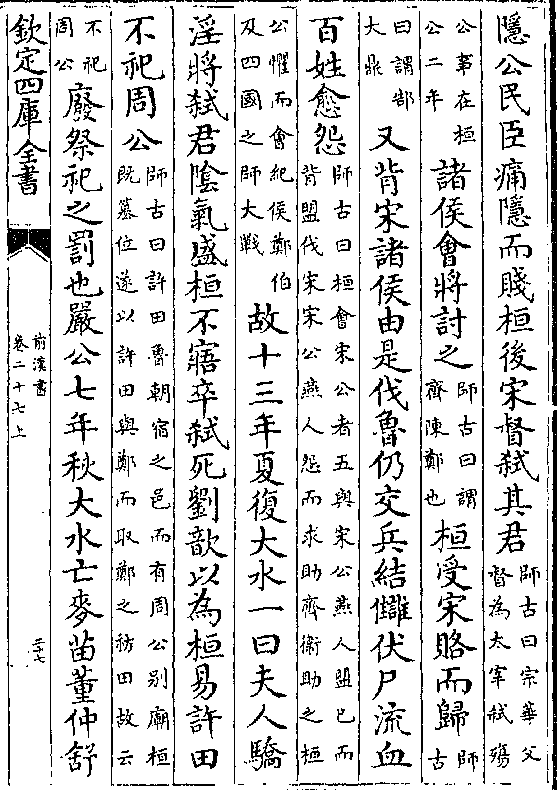 隱公民臣痛隱而賤桓後宋督弑其君師古曰宗華父督為太宰弑殤
公事在桓公二年諸侯會將討之師古曰謂齊陳鄭也桓受宋賂而歸師古
曰謂郜大鼎又背宋諸侯由是伐魯仍交兵結讎伏尸流血
百姓愈怨師古曰桓會宋公者五與宋公燕人盟已而背盟伐宋宋公燕人怨而求助齊衛助之桓
公懼而會紀侯鄭伯及四國之師大戰故十三年夏復大水一曰夫人驕
淫將弑君陰氣盛桓不寤卒弑死劉歆以為桓易許田
不祀周公師古曰許田魯朝宿之邑而有周公别廟桓既簒位遂以許田與鄭而取鄭之祊田故云
不祀周公廢祭祀之罰也嚴公七年秋大水亡麥苗董仲舒
欽定四庫全書
前漢書
卷二十七上
三十七